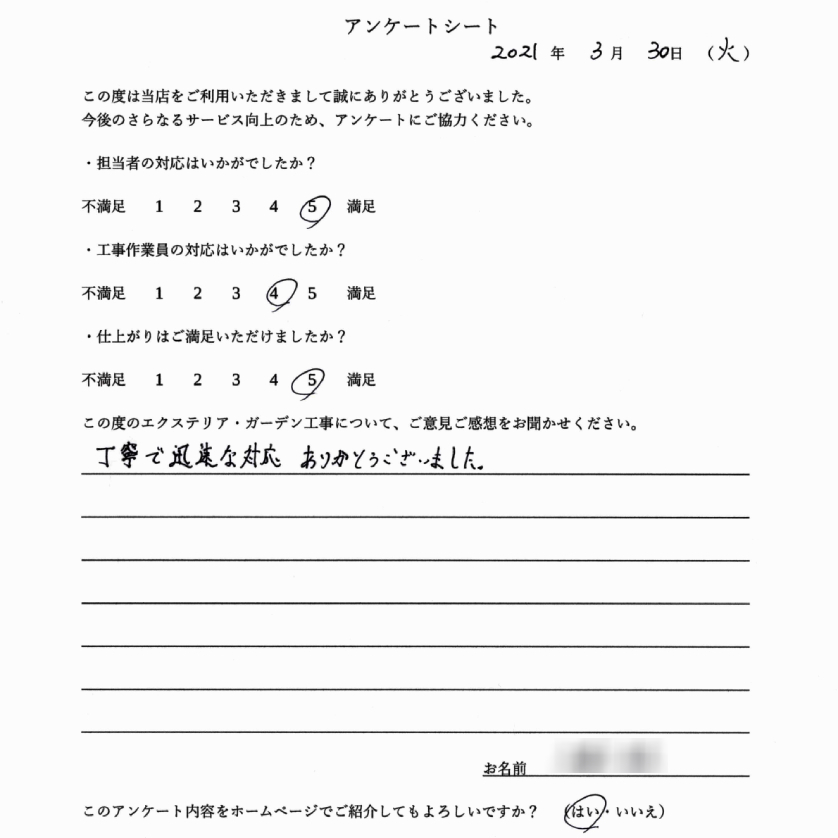 アンケートシート
2021 年 3 月 30日 (火)
この度は当店をご利用いただきまして誠にありがとうございました。
今後のさらなるサービス向上のため、アンケートにご協力ください。
・担当者の対応はいかがでしたか？
不満足 1 2 3 4 5 満足
・工事作業員の対応はいかがでしたか？
不満足 1 2 3 4 5 満足
・仕上がりはご満足いただけましたか？
不満足 1 2 3 4 5 満足
この度のエクステリア・ガーデン工事について、ご意見ご感想をお聞かせください。
丁寧で迅速な対応 ありがとうございました。
お名前
このアンケート内容をホームページでご紹介してもよろしいですか？ (はい・いいえ)